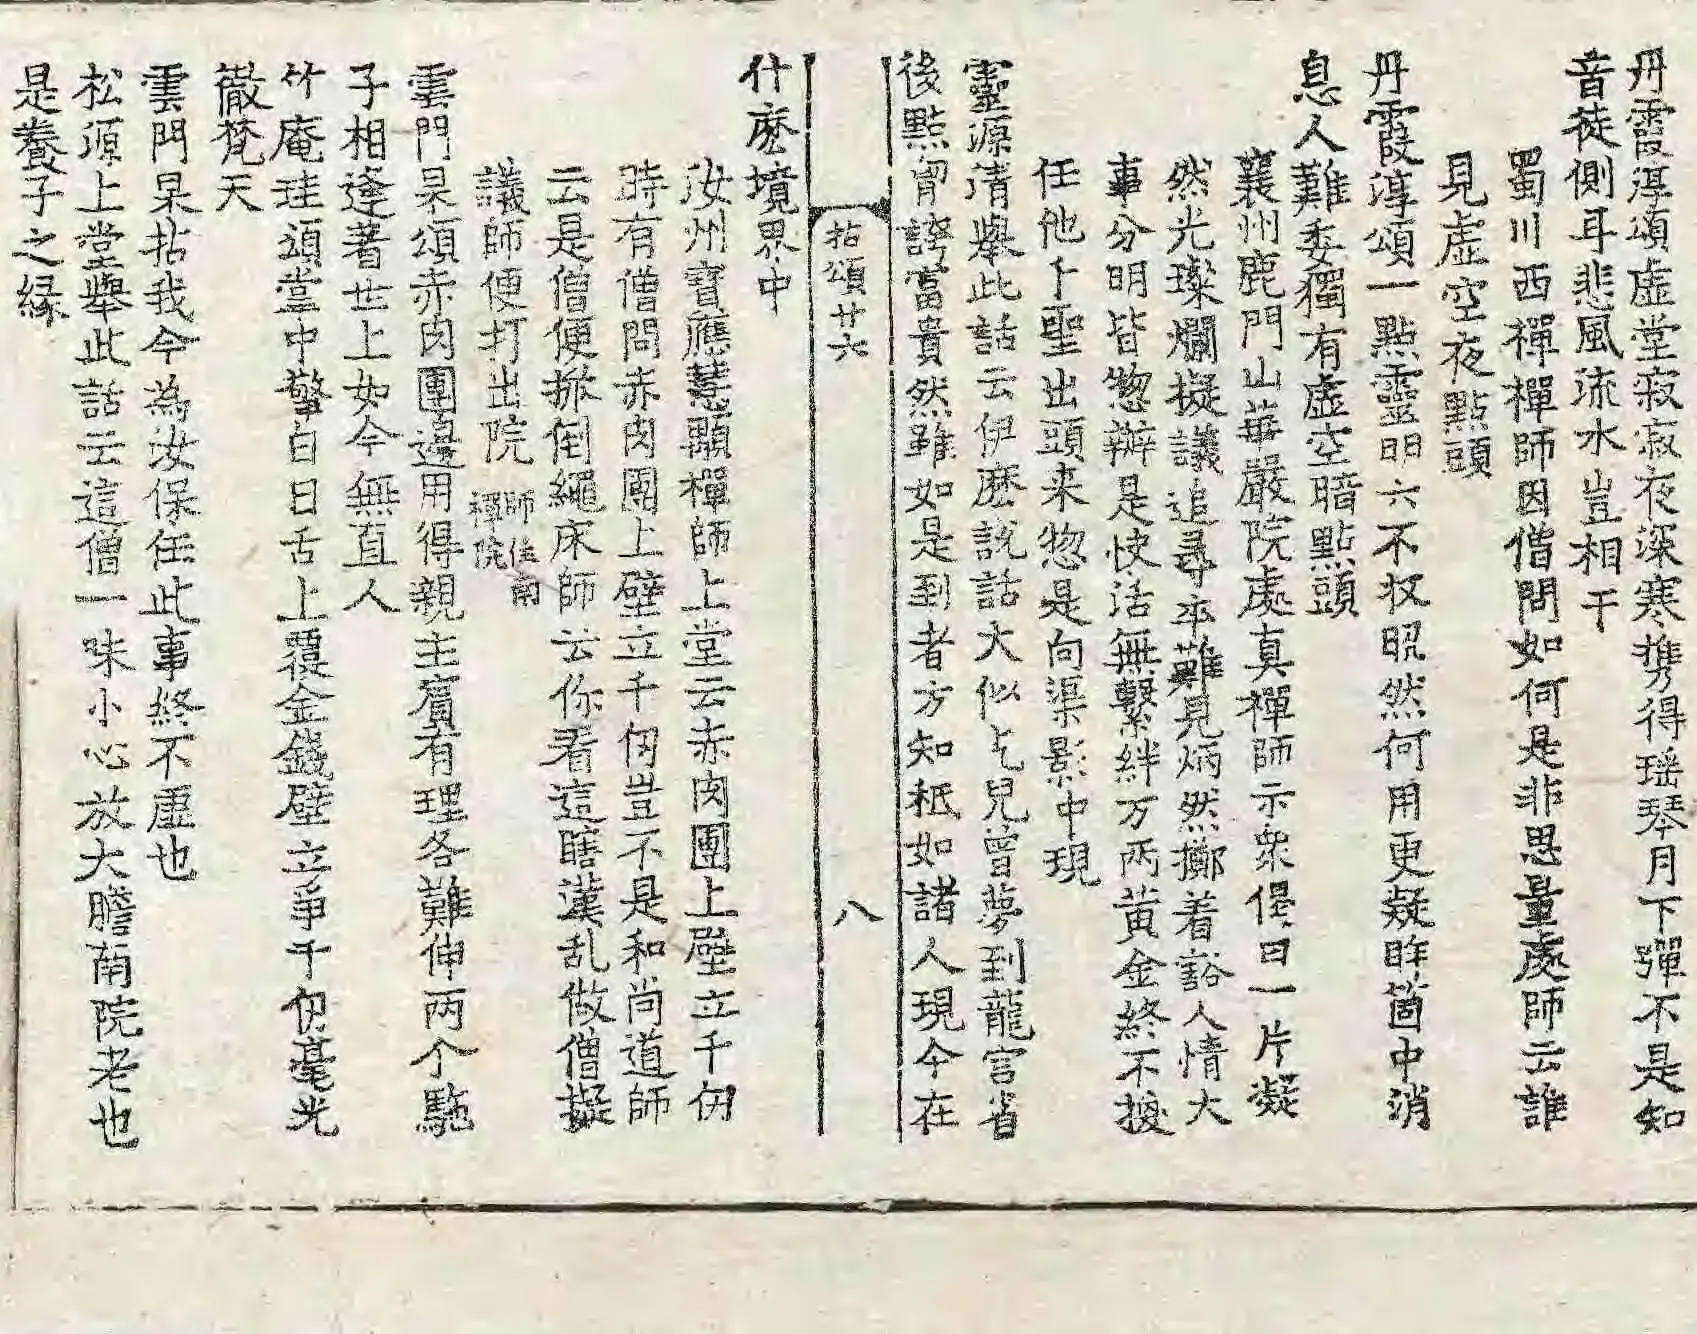 丹霞淳頌虛堂寂寂夜深寒携得瑶琴月下彈不是知
音徒側耳悲風流水豈相干
蜀川西禪禪師因僧問如何是非思量處師云誰
見虛空夜點頭
丹霞淳頌一點靈明六不収昭然何用更凝眸箇中消
息人難委獨有虛空暗點頭
襄州鹿門山華嚴院處真禪師示衆偈曰一片凝
然光璨爛擬議追尋卒難見炳然擲着豁人情大
事分明皆惣辦是快活無繫絆万兩黄金終不換
任他千聖出頭来惣是向渠影中現
靈源清舉此話云伊麽說話大似乞兒曾夢到龍宫省
後點胷誇富貴然雖如是到者方知秖如諸人現今在
拈頌廿六
八
什麽境界中
汝州寶應慧顒禪師上堂云赤肉團上壁立千仞
時有僧問赤肉團上壁立千仞豈不是和尚道師
云是僧便掀倒繩床師云你看這瞎漢乱做僧擬
議師便打出院師住南禪院
雲門杲頌赤肉團邊用得親主賓有理各難伸兩个駞
子相逢著世上如今無直人
竹庵珪頌掌中擎白日舌上覆金錢壁立爭千仞毫光
徹梵天
雲門杲拈我今為汝保任此事終不虛也
松源上堂舉此話云這僧一味小心放大膽南院老也
是養子之縁